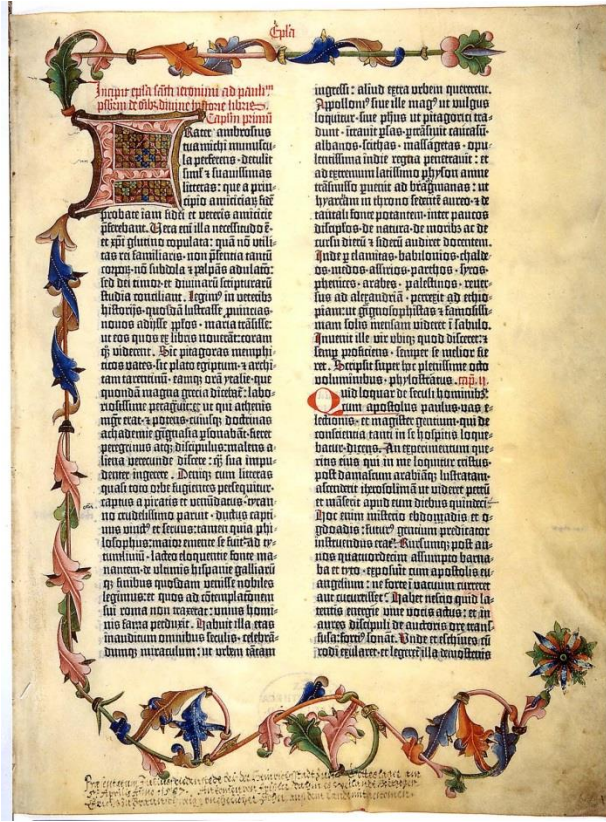 Epl̄a
Incipit epl̄a sc̄ti ieronimi ad pauliū
pb̄rm de oīb; diuine historie libris.
Capl̄m primū
Frater ambrosius
tua michi munuscu-
la perferens · detulit
siml̄ et suauissimas
litteras: que a prin-
cipio amiciciar̄ fidē
probate iam fidei et veteris amicicie
p̄ferebant. Uera em̄ illa necessitudo ē·
et xp̄i glutino copulata: quā nō utili-
tas rei familiaris· non p̄sentia tantū
corpor̄· nō subdola et palpās adulaco·
sed dei timor· et diuinar̄ scripturarū
studia conciliant. Legim⁹ in veterib;
historijs· quosdā lustrasse puincias·
nouos adijsse pplos· maria trāsisse:
ut eos quos ex libris nouerāt: coram
q; viderent. Sic pitagoras memphi-
ticos vates· sic plato egiptum· et archi-
tam tarentinū· eamq; orā ytalie· que
quondā magna grecia dicebat̄: labo-
riosissime peragiuit: et ut qui athenis
mgr̄ erat· et potens· cuiusq; doctrinas
achademie gignasia psonabāt· fieret
peregrinus atq; discipulus: malens a-
liena verecunde discere: q̄ sua impu-
denter ingerere. Deniq; cum litteras
quasi toto orbe fugientes persequitur·
captus a piratis et venūdatus· tyran-
no crudelissimo paruit· ductus capti-
uus vinct⁹ et seruus: tamen quia phi-
losophus: maior emente se fuit: ad ty-
tum liuiū· lacteo eloquentie fonte ma-
nantem· de vltimis hispanie galliarū-
q; finibus quosdam venisse nobiles
legimus: et quos ad cōtemplationem
sui roma non traxerat: vnius homi-
nis fama perduxit. Habuit illa etas
inauditum omnibus seculis· celebrā-
dumq; miraculum: ut urbem tātam
ingressi: aliud extra urbem quererent.
Appolloni⁹ siue ille mag⁹ ut vulgus
loquitur· siue phūs· ut pitagorici tra-
dunt· intrauit psas· ptrāsiuit caucasū·
albanos· scithas· massagetas· opu-
lentissima indie regna penetrauit: et
ad extremum latissimo physon amne
trāsmisso puenit ad bragmanas: ut
hyarcam in throno sedentē aureo· et de
tantali fonte potantem· inter paucos
discipl̄os· de natura· de moribus ac de
cursu dierū et siderū audiret docentem.
Inde p elamitas· babilonios· chalde-
os· medos· assirios· parthos· syros·
phenices· arabes· palestinos· reuer-
sus ad alexandriā· perrexit ad ethio-
piam: ut gignosophistas et famosissi-
mam solis mensam videret ī sabulo.
Inuenit ille vir ubiq; quod disceret: et
semp proficiens· semper se melior fie-
ret. Scripsit super hoc plenissime octo
voluminibus· phylostratus. cap̄. ii.
Quid loquar de seculi hominib;:
cum apostolus paulus· vas e-
lectionis· et magister gentium· qui de
consciencia tanti in se hospitis loque-
batur· dicens. An experimentum que-
ritis eius qui in me loquitur cristus·
post damascum arabiāq; lustratam:
ascenderit iherosolimā ut videret petrū
et māserit apud eum diebus quindecī.
Hoc enim misterio ebdomadis et o-
gdoadis: futur⁹ gentium predicator
instruendus erat. Rursumq; post an-
nos quatuordecim assumpto barna-
ba et tyto· exposuit cum apostolis eu-
angelium: ne forte ī vacuum curreret
aut cucurrisset. Habet nescio quid la-
tentis energie viue vocis actus: et in
aures discipuli de auctoris ore trans-
fusa: forti⁹ sonat. Unde et eschines cū
rodi exularet· et legeret̄ illa demostenis